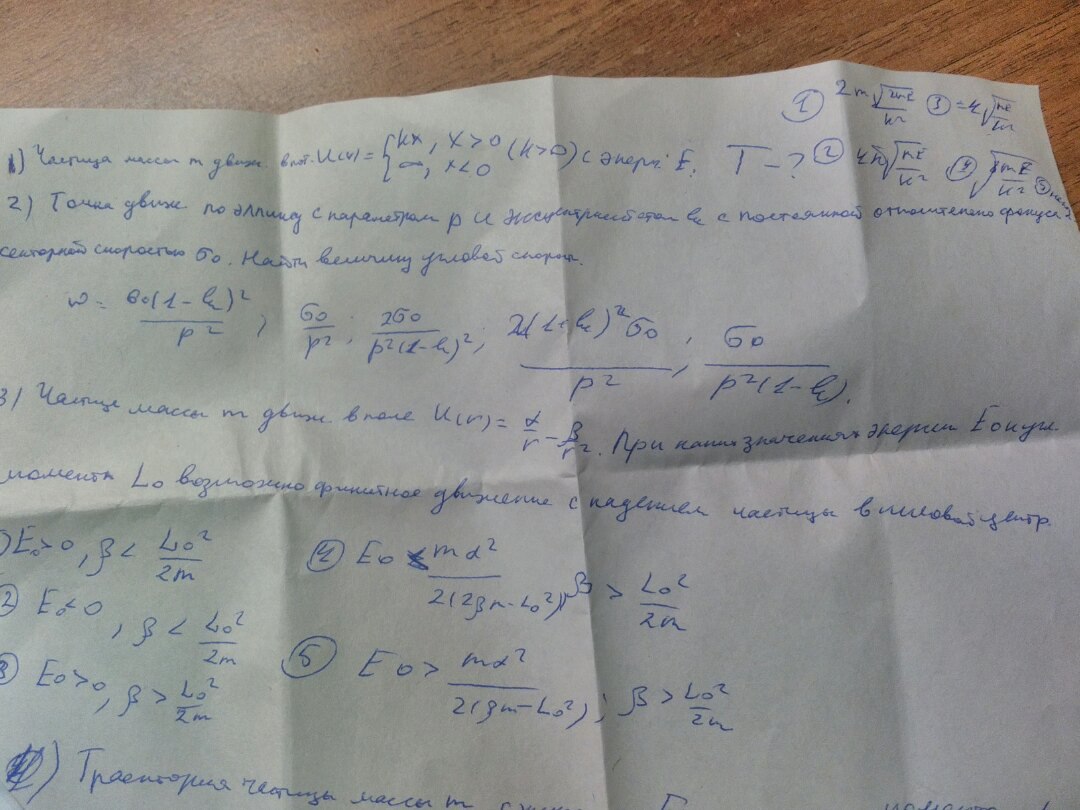 ① 2m √(2mE/k²) ③ = 4√(mE/k²)
1) Частица массы m движ. в пот. U(x) = { kx, x > 0 ; ∞, x < 0 (k > 0) с энерг. E. T - ? ② ④ ⑤
2) Точка движ. по эллипсу с параметром p и эксцентриситетом с постоянной относительно фокуса
секторной скоростью σ₀. Найти величину угловой скорости.
ω = σ₀(1 - )² / p² ; σ₀/p² ; 2σ₀ / p²(1 - )² ; (1 + )²σ₀ / p² ; σ₀ / p²(1 - ).
3) Частица массы m движ. в поле U(r) = α/r - β/r². При каких значениях энергии E₀ и
момента L₀ возможно финитное движение с падением частицы в силовой центр.
) E₀ > 0, β < L₀²/2m
④ E₀ < mα² / 2(2βm - L₀²), β > L₀²/2m
2 E₀ < 0, β < L₀²/2m
⑤ E₀ > mα² / 2(βm - L₀²); β > L₀²/2m
3 E₀ > 0, β > L₀²/2m
4) Траектория частицы массы m